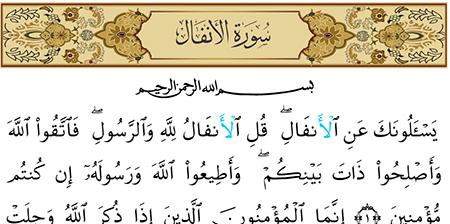 سُورَةُ الأَنفَالِ
بِسْمِ اللَّهِ الرَّحْمَنِ الرَّحِيمِ
يَسْـَٔلُونَكَ عَنِ ٱلْأَنفَالِ ۖ قُلِ ٱلْأَنفَالُ لِلَّهِ وَٱلرَّسُولِ ۖ فَٱتَّقُوا۟ ٱللَّهَ
وَأَصْلِحُوا۟ ذَاتَ بَيْنِكُمْ ۖ وَأَطِيعُوا۟ ٱللَّهَ وَرَسُولَهُۥٓ إِن كُنتُم
مُّؤْمِنِينَ ﴿١﴾ إِنَّمَا ٱلْمُؤْمِنُونَ ٱلَّذِينَ إِذَا ذُكِرَ ٱللَّهُ وَجِلَتْ